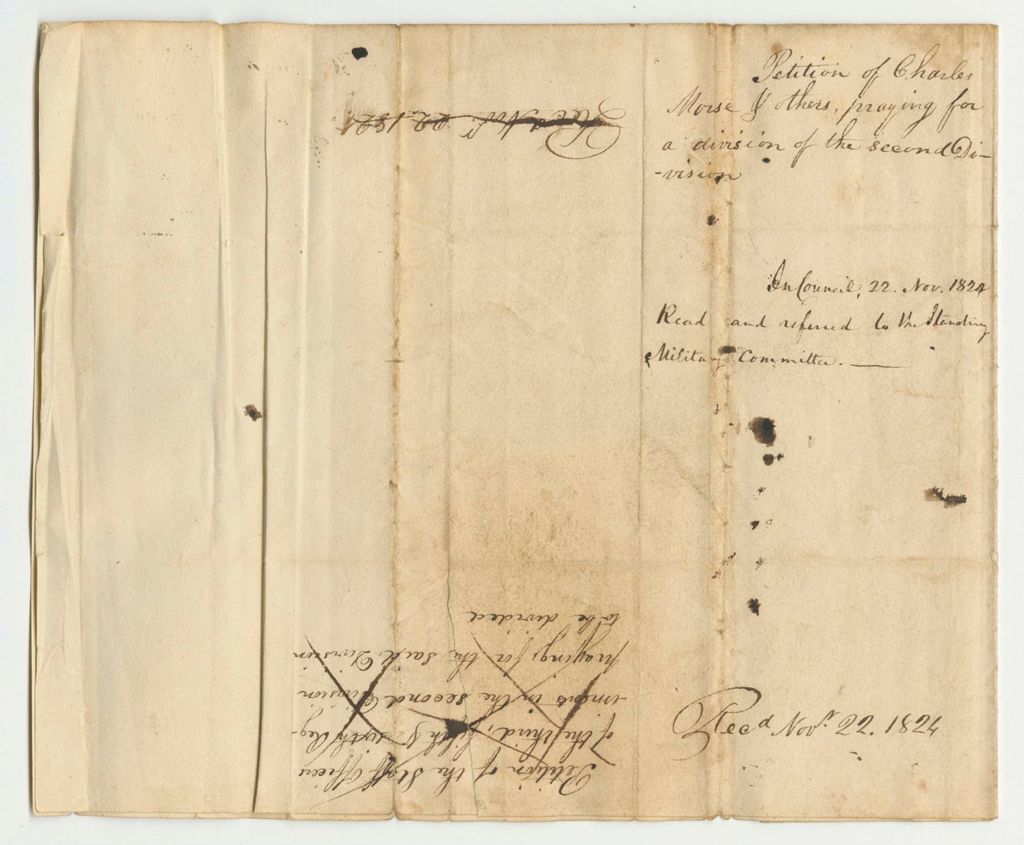 Petition of Charles
Morse & others, praying for
a division of the second Di-
-vision
In Council, 22. Nov. 1824
Read and referred to the Standing
Military Committee. —
Recd Novr. 22. 1824
Recd Novr. 22. 182
Petition of the Staff Officers
of the third, fifth & sixth Reg-
-iments in the second Division
praying for the said Division
to be divided